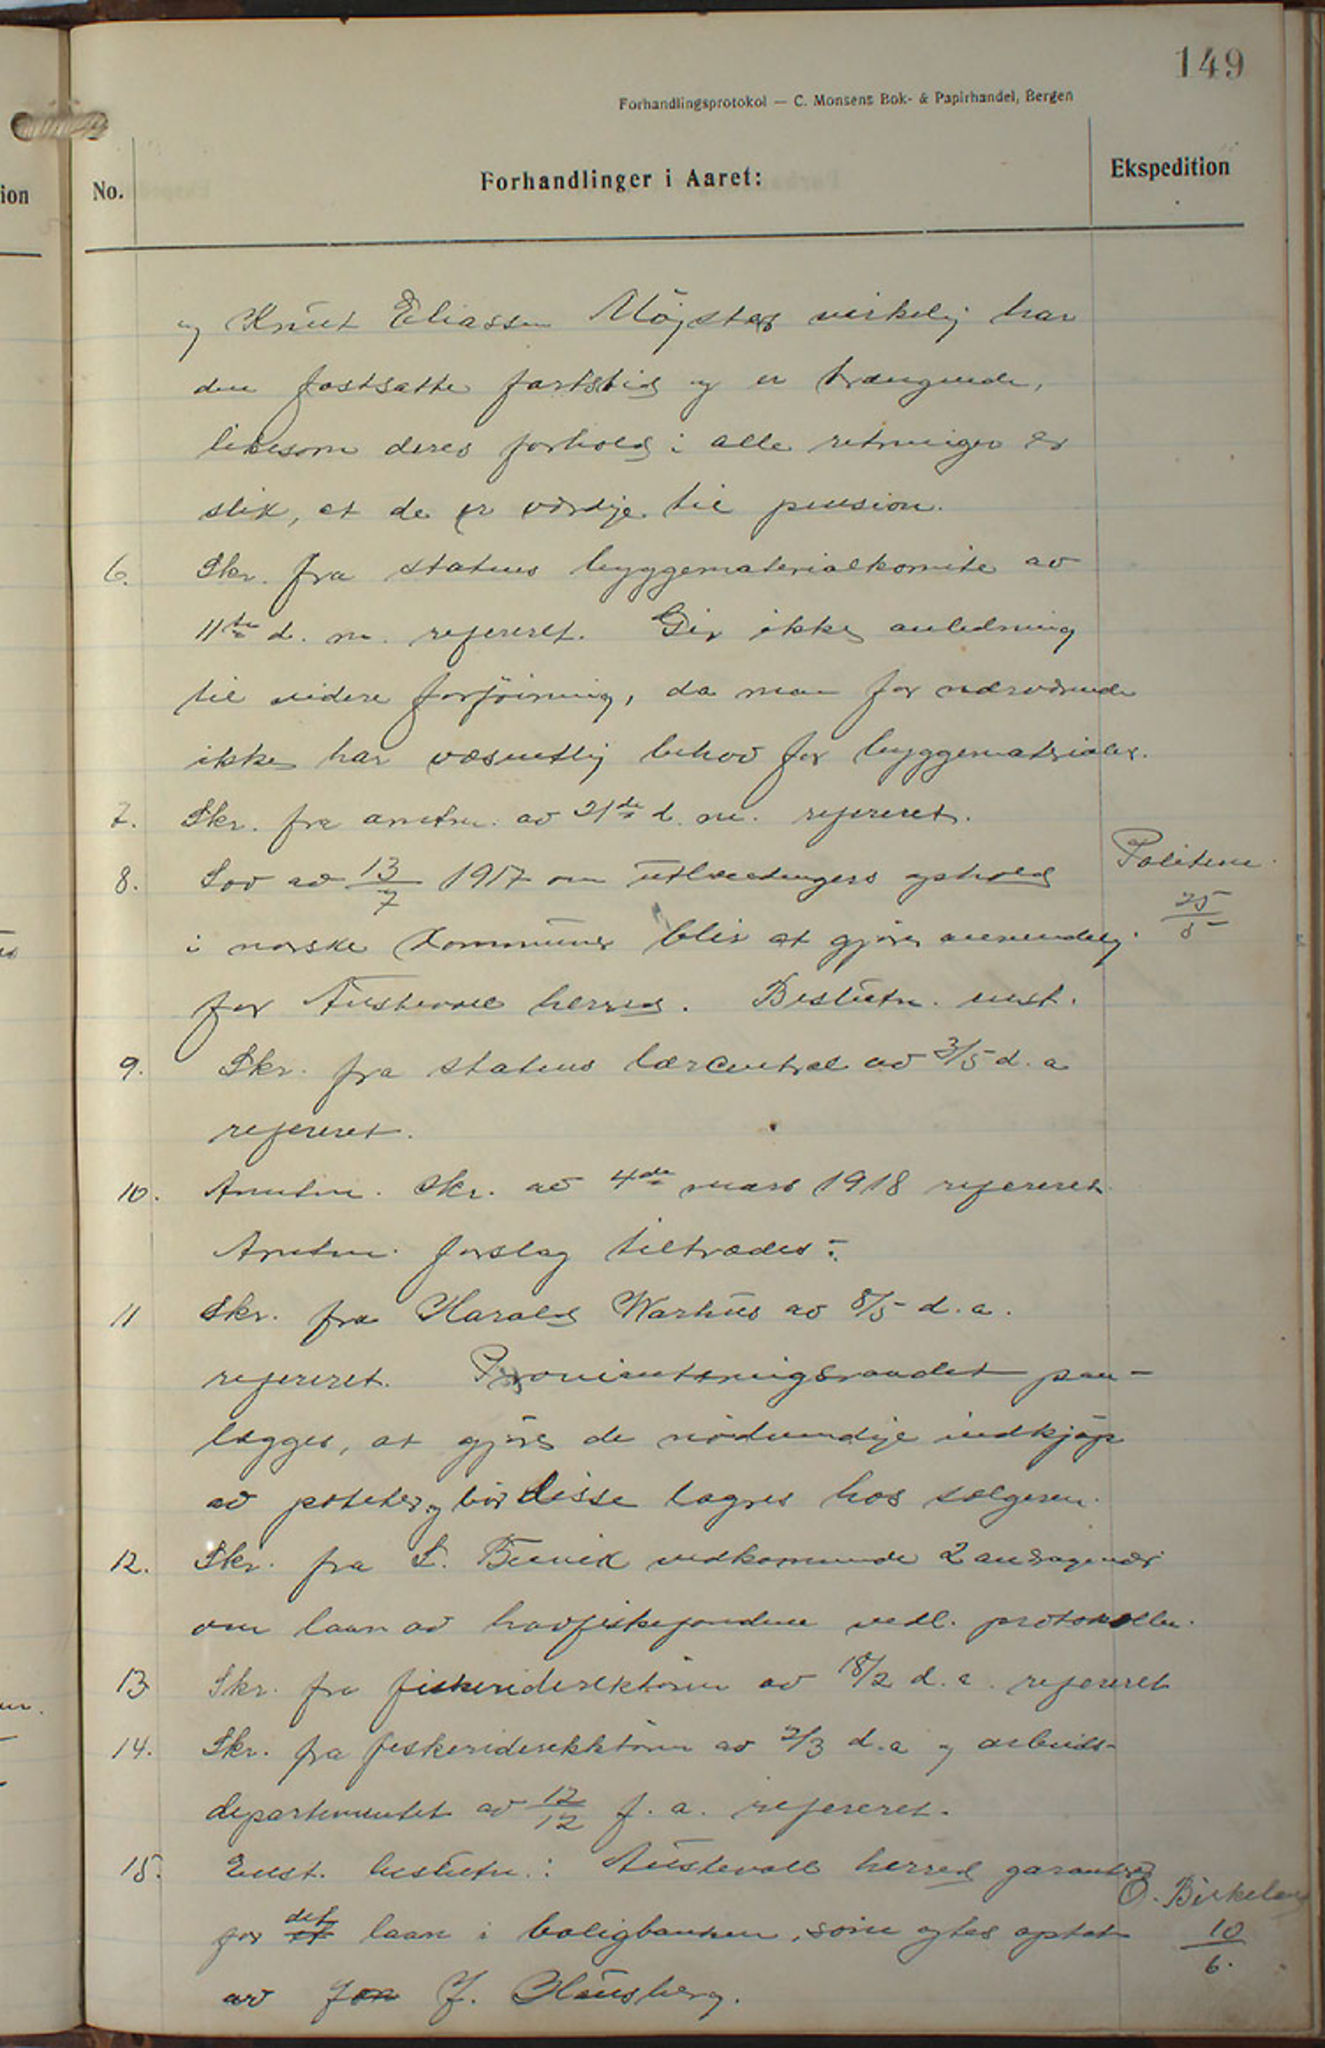 149
Forhandlingsprotokol — C. Monsens Bok- & Papirhandel, Bergen
ion
No.
Forhandlinger i Aaret:
Ekspedition
og Knut Eliassen Møgster virkelig har
den fastsatte fartstid og er trængende,
likesom deres forhold i alle retninger er
slik, at de er værdige til pension.
6. Skr. fra statens byggematerialkomite av
11te d. m. refereret. Gir ikke anledning
til videre forføining, da man for nærværende
ikke har væsentlig behov for byggematerialer.
7. Skr. fra amtm. av 21de d. m. refereret.
8. Lov av 13/7 1917 om utlændingers ophold
Politiene
25/5
i norske kommuner blir at gjøre anvendelig
for Austevoll herred. Beslutn. enst.
9. Skr. fra statens lærcentral av 3/5 d. a
refereret.
10. Amtm. skr. av 4de mars 1918 refereret
Amtm. forslag tiltrædes.
11 Skr. fra Harald Warhus av 8/5 d. a.
refereret. Provianteringsraadet paa-
lægges, at gjøre de nødvendige indkjøp
av poteter og bør disse lagres hos sælgeren.
12. Skr. fra vedkommende 2 andragender
om laan av havfiskefondene vedl. protokollen.
13 Skr. fra fiskeridirektøren av 18/2 d. a. refereret
14. Skr. fra fiskeridirektøren av 2/3 d. a og arbeids-
departementet av 12/12 f. a. refereret.
15. Enst. beslutn.: Austevoll herred garanterer
O. Birkeland
10/6.
for et det laan i boligbanken, som agtes optat
av Jon J. Husberg.